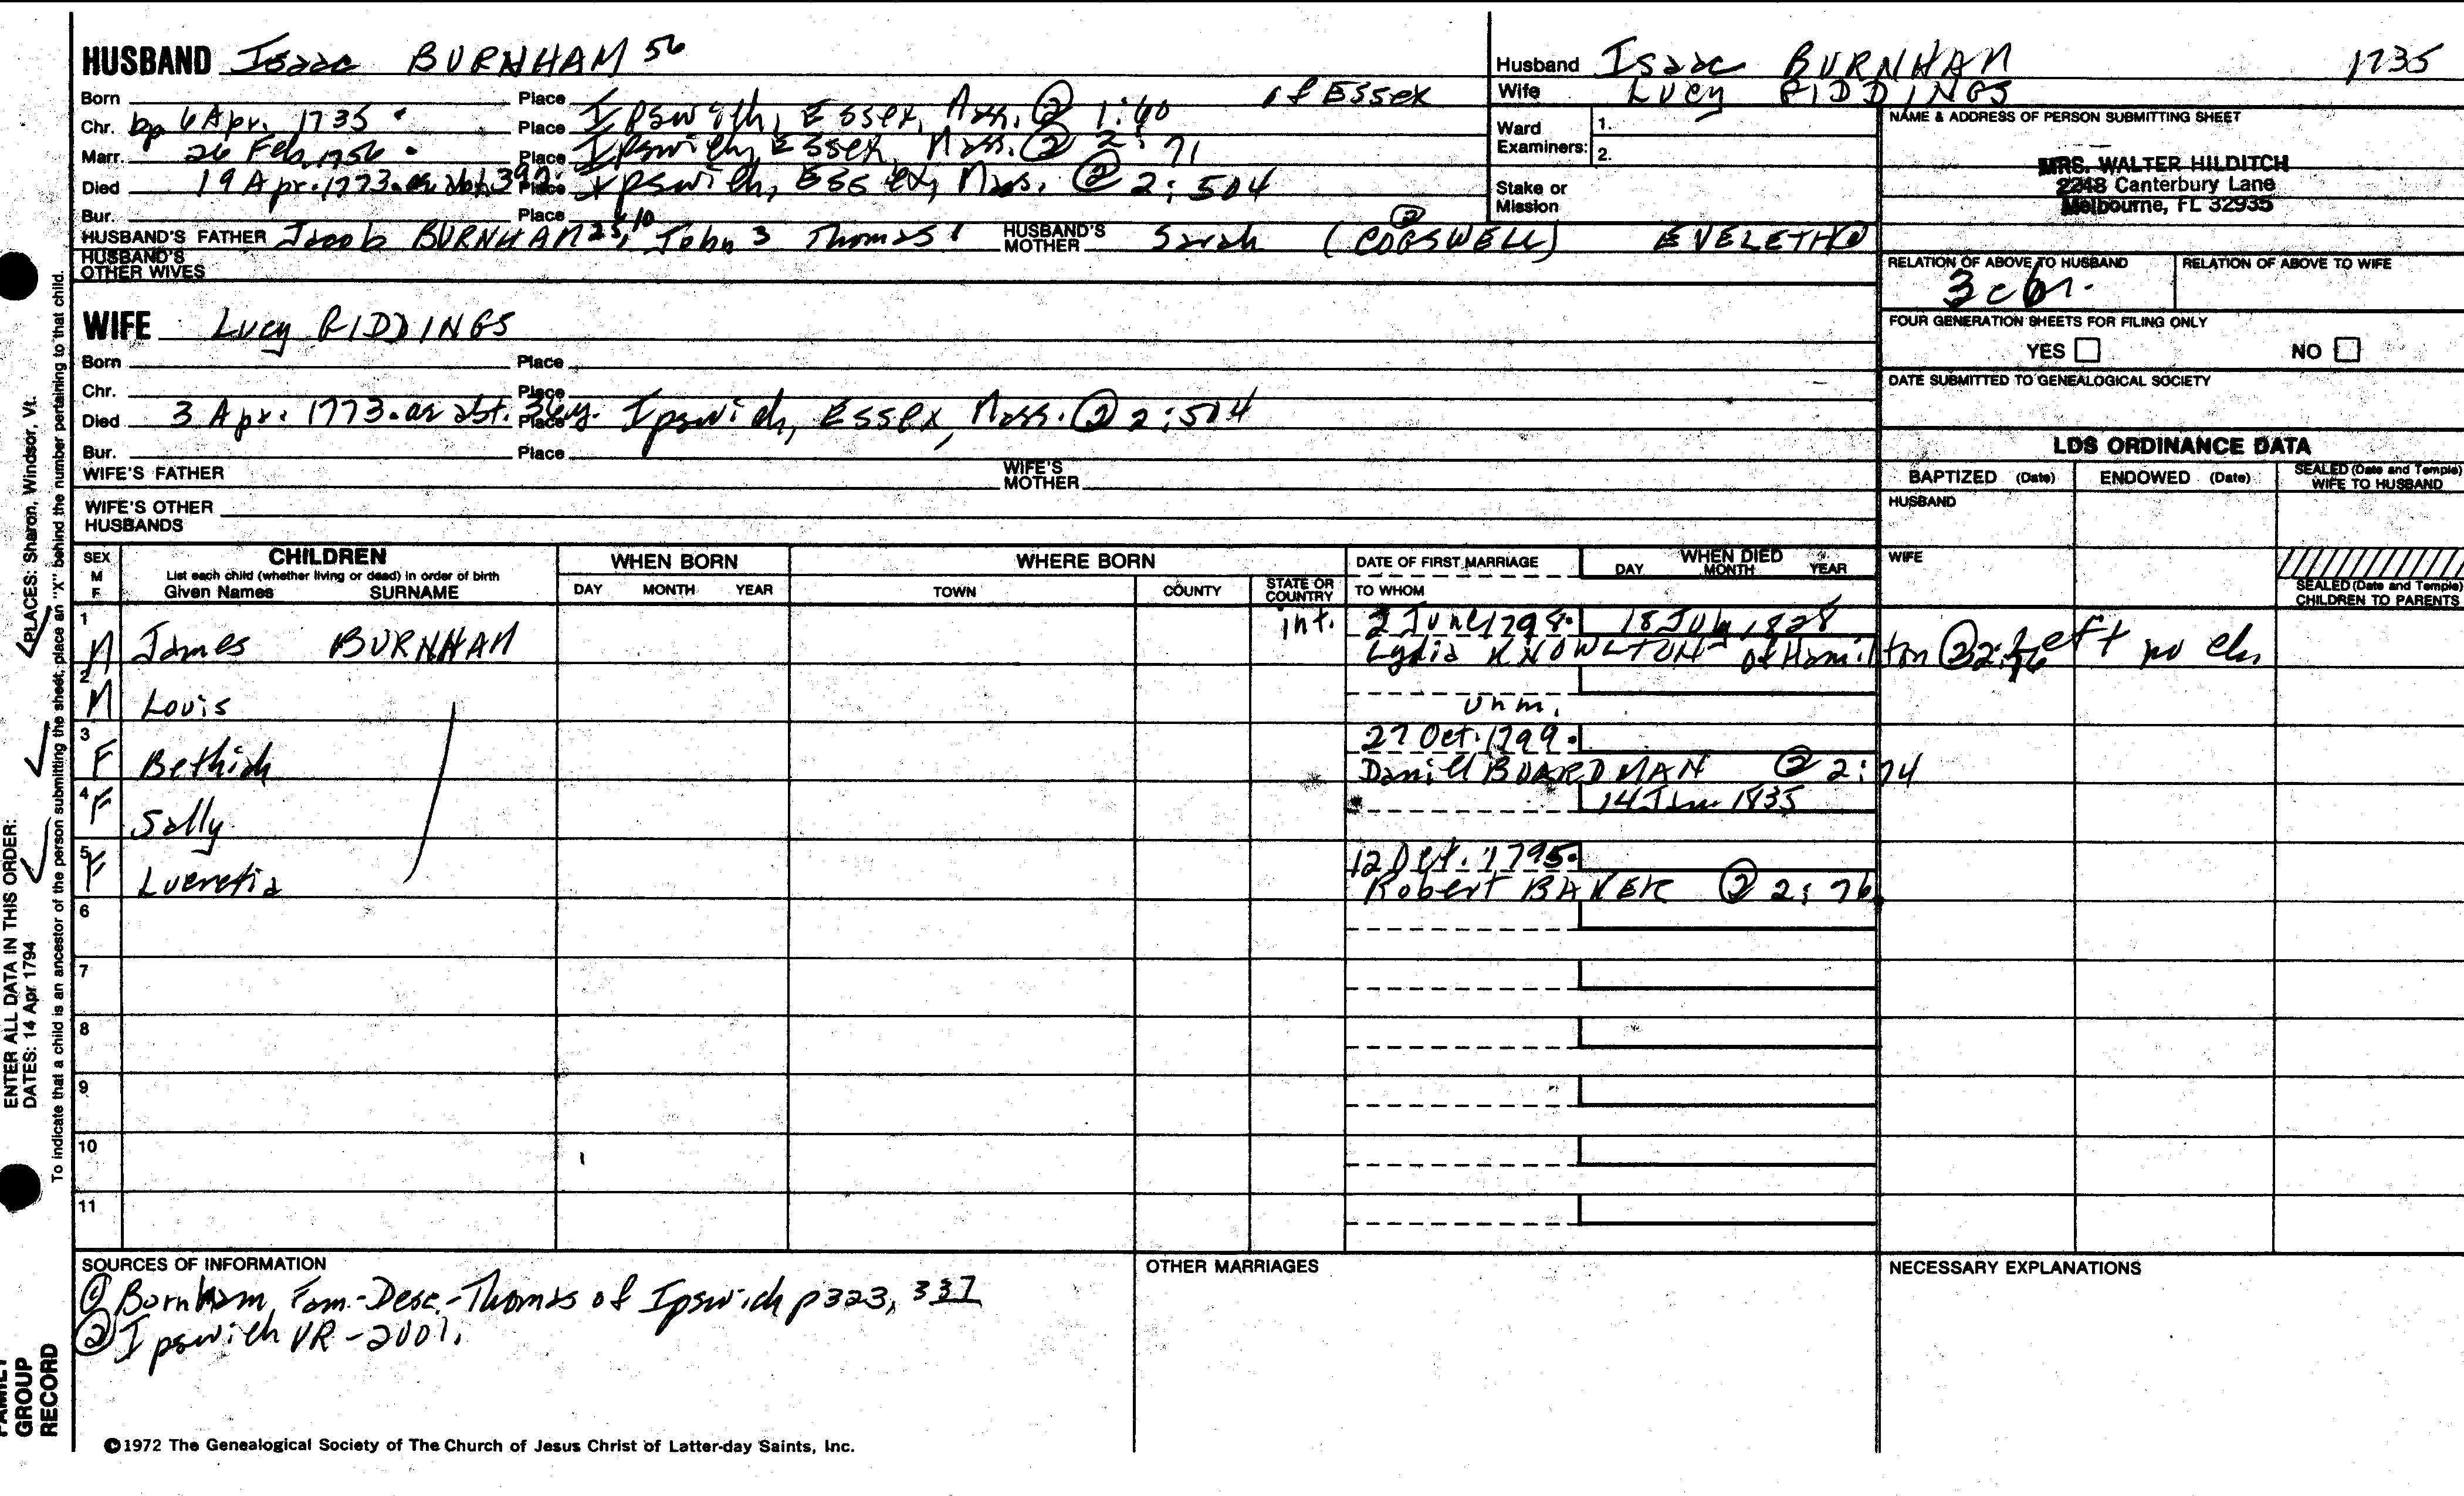 HUSBAND Isaac BURNHAM 56
Husband Isaac BURNHAM 1735
Born Place of Essex
Wife Lucy GIDDINGS
Chr. bp 6 Apr. 1735 Place Ipswich, Essex, Mass. @ 1:60
Marr. 26 Feb 1756 Place Ipswich, Essex, Mass. @ 2:71
Died 19 Apr. 1773 ae abt. 39 Place Ipswich, Essex, Mass. @ 2:504
Bur. Place
Ward Examiners: 1. 2.
Stake or Mission
NAME & ADDRESS OF PERSON SUBMITTING SHEET
MRS. WALTER HILDITCH
2248 Canterbury Lane
Melbourne, FL 32935
HUSBAND'S FATHER Jacob BURNHAM 25, 10 John 3 Thomas 1 HUSBAND'S MOTHER Sarah (COGSWELL) ② EVELETH
HUSBAND'S OTHER WIVES
RELATION OF ABOVE TO HUSBAND RELATION OF ABOVE TO WIFE
3c6r.
WIFE Lucy GIDDINGS
FOUR GENERATION SHEETS FOR FILING ONLY
YES NO
Born Place
DATE SUBMITTED TO GENEALOGICAL SOCIETY
Chr. Place
Died 3 Apr. 1773 ae abt. 36y. Place Ipswich, Essex, Mass. ② 2:504
Bur. Place
WIFE'S FATHER WIFE'S MOTHER
WIFE'S OTHER HUSBANDS
LDS ORDINANCE DATA
BAPTIZED (Date) ENDOWED (Date) SEALED (Date and Temple) WIFE TO HUSBAND
HUSBAND
WIFE
SEALED (Date and Temple) CHILDREN TO PARENTS
SEX M F CHILDREN WHEN BORN WHERE BORN DATE OF FIRST MARRIAGE WHEN DIED
List each child (whether living or dead) in order of birth
Given Names SURNAME DAY MONTH YEAR TOWN COUNTY STATE OR COUNTRY TO WHOM DAY MONTH YEAR
1 int. 2 June 1798 18 July 1828
M James BURNHAM Lydia KNOWLTON of Hamilton ② 2:76 left no ch.
2
M Louis unm.
3 27 Oct. 1799
F Bethiah Daniel BOARDMAN ② 2:74
4 14 Jan 1835
F Sally
5 12 Oct. 1795
F Lucretia Robert BAKER ② 2:76
6
7
8
9
10
11
SOURCES OF INFORMATION
① Burnham Fam.-Desc.-Thomas of Ipswich p323, 337
② Ipswich VR-2001.
OTHER MARRIAGES
NECESSARY EXPLANATIONS
©1972 The Genealogical Society of The Church of Jesus Christ of Latter-day Saints, Inc.
FAMILY GROUP RECORD
ENTER ALL DATA IN THIS ORDER:
DATES: 14 Apr 1794
PLACES: Sharon, Windsor, Vt.
To indicate that a child is an ancestor of the person submitting the sheet, place an "X" behind the number pertaining to that child.